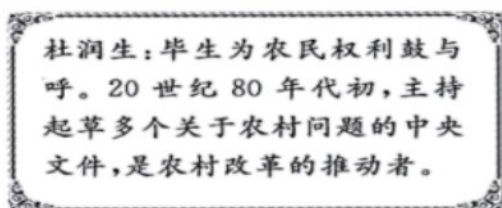 杜润生：毕生为农民权利鼓与
呼。20 世纪 80 年代初，主持
起草多个关于农村问题的中央
文件，是农村改革的推动者。